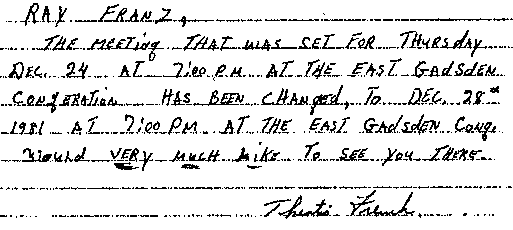 RAY FRANZ,
THE MEETING THAT WAS SET FOR THURSDAY
DEC. 24 AT 7:00 P.M AT THE EAST GADSDEN
CONGERATION HAS BEEN CHANGED, TO DEC. 28th
1981 AT 7:00 PM AT THE EAST GADSDEN CONG.
WOULD VERY MUCH LIKE TO SEE YOU THERE.
French